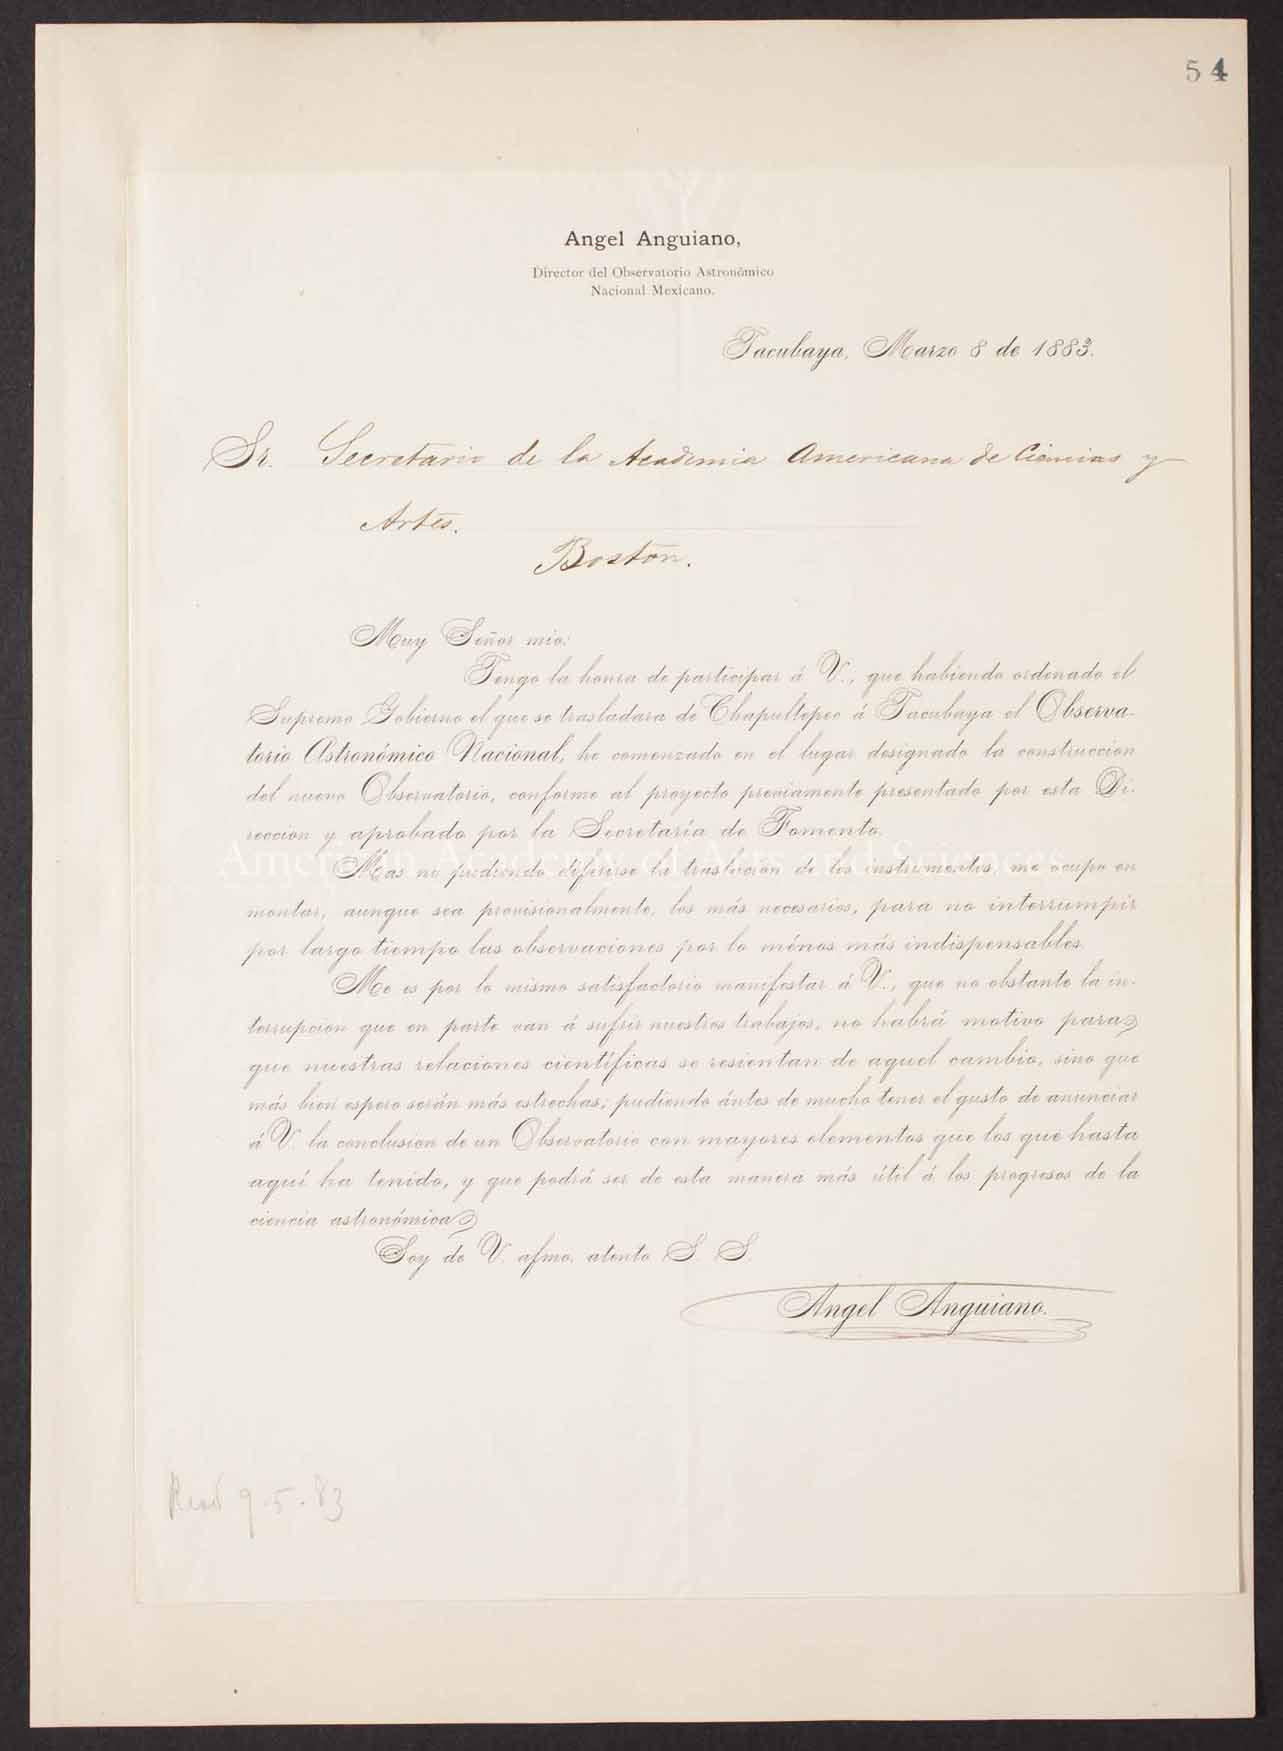 54
Angel Anguiano,
Director del Observatorio Astronómico
Nacional Mexicano.
Tacubaya, Marzo 8 de 1883.
Sr. Secretario de la Academia Americana de Ciencias y
Artes.
Boston.
Muy Señor mio:
Tengo la honra de participar á V., que habiendo ordenado el
Supremo Gobierno el que se trasladara de Chapultepec á Tacubaya el Observa-
torio Astronómico Nacional, he comenzado en el lugar designado la construccion
del nuevo Observatorio, conforme al proyecto previamente presentado por esta Di-
reccion y aprobado por la Secretaría de Fomento.
American Academy of Arts and Sciences
Mas no pudiendo diferirse la traslacion de los instrumentos, me ocupo en
montar, aunque sea provisionalmente, los más necesarios, para no interrumpir
por largo tiempo las observaciones por lo ménos más indispensables.
Me es por lo mismo satisfactorio manifestar á V., que no obstante la in-
terrupcion que en parte van á sufrir nuestros trabajos, no habrá motivo para
que nuestras relaciones científicas se resientan de aquel cambio, sino que
más bien espero serán más estrechas; pudiendo ántes de mucho tener el gusto de anunciar
á V. la conclusion de un Observatorio con mayores elementos que los que hasta
aquí ha tenido, y que podrá ser de esta manera más útil á los progresos de la
ciencia astronómica
Soy de V. afmo. atento S. S.
Angel Anguiano.
9-5-83